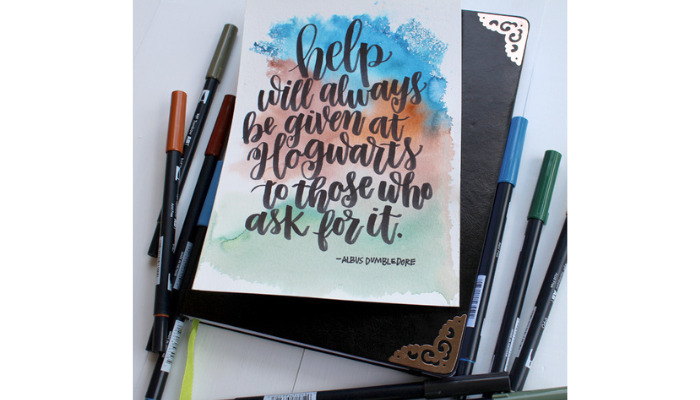 help
will always
be given at
Hogwarts
to those who
ask for it.
-ALBUS DUMBLEDORE